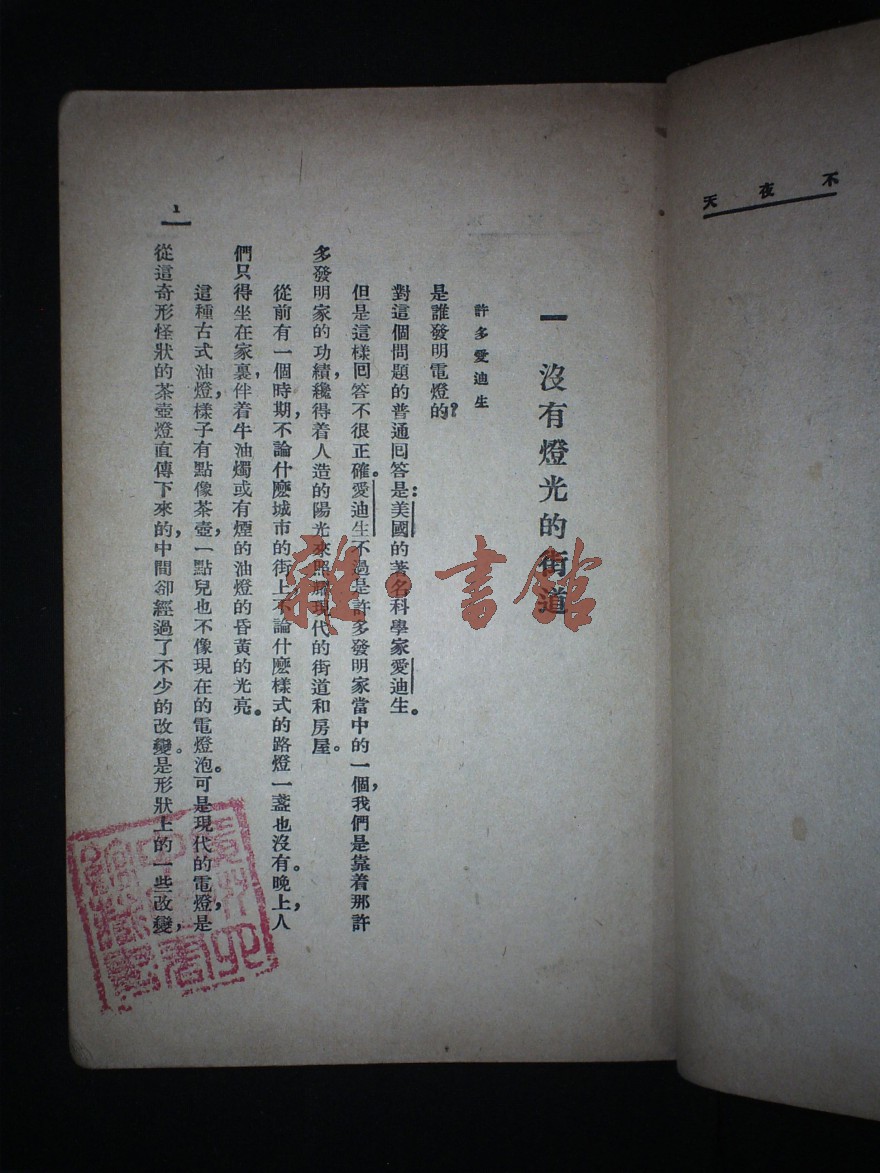 不夜天
一　沒有燈光的街道
許多愛迪生
是誰發明電燈的？
對這個問題的普通回答是：美國的著名科學家愛迪生。
但是這樣回答不很正確。愛迪生不過是許多發明家當中的一個，我們是靠着那許
多發明家的功績，纔得着人造的陽光來照耀現代的街道和房屋。
從前有一個時期，不論什麽城市的街上，不論什麽樣式的路燈一盞也沒有。晚上，人
們只得坐在家裏，伴着牛油燭或有煙的油燈的昏黃的光亮。
這種古式油燈，樣子有點像茶壺，一點兒也不像現在的電燈泡。可是現代的電燈，是
從這奇形怪狀的茶壺燈直傳下來的，中間卻經過了不少的改變。是形狀上的一些改變，
1
雜·書館